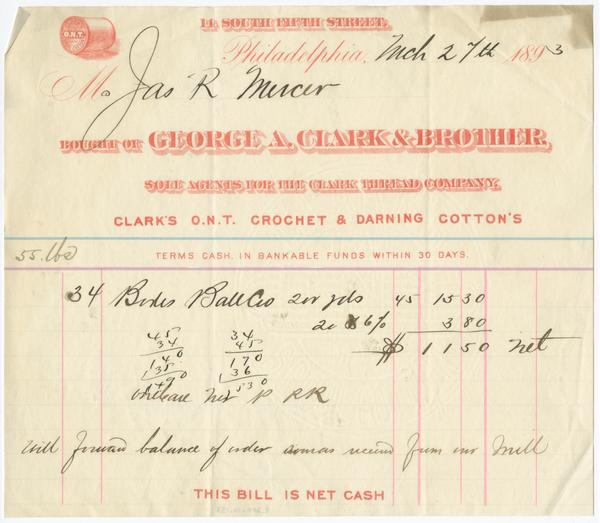 O.N.T.
11 SOUTH FIFTH STREET.
Philadelphia, Mch 27th 1893
M Jas R Mercer
BOUGHT OF GEORGE A. CLARK & BROTHER,
SOLE AGENTS FOR THE CLARK THREAD COMPANY.
CLARK'S O.N.T. CROCHET & DARNING COTTON'S
55 lbs
TERMS CASH, IN BANKABLE FUNDS WITHIN 30 DAYS.
34 Bodes Ball Co 200 yds 45 15 30
20 & 6% 3 80
$ 11 50 net
45 34
34 45
140 170
135 136
1490 1530
One case P RR
Will forward balance of order as received from our Mill
THIS BILL IS NET CASH